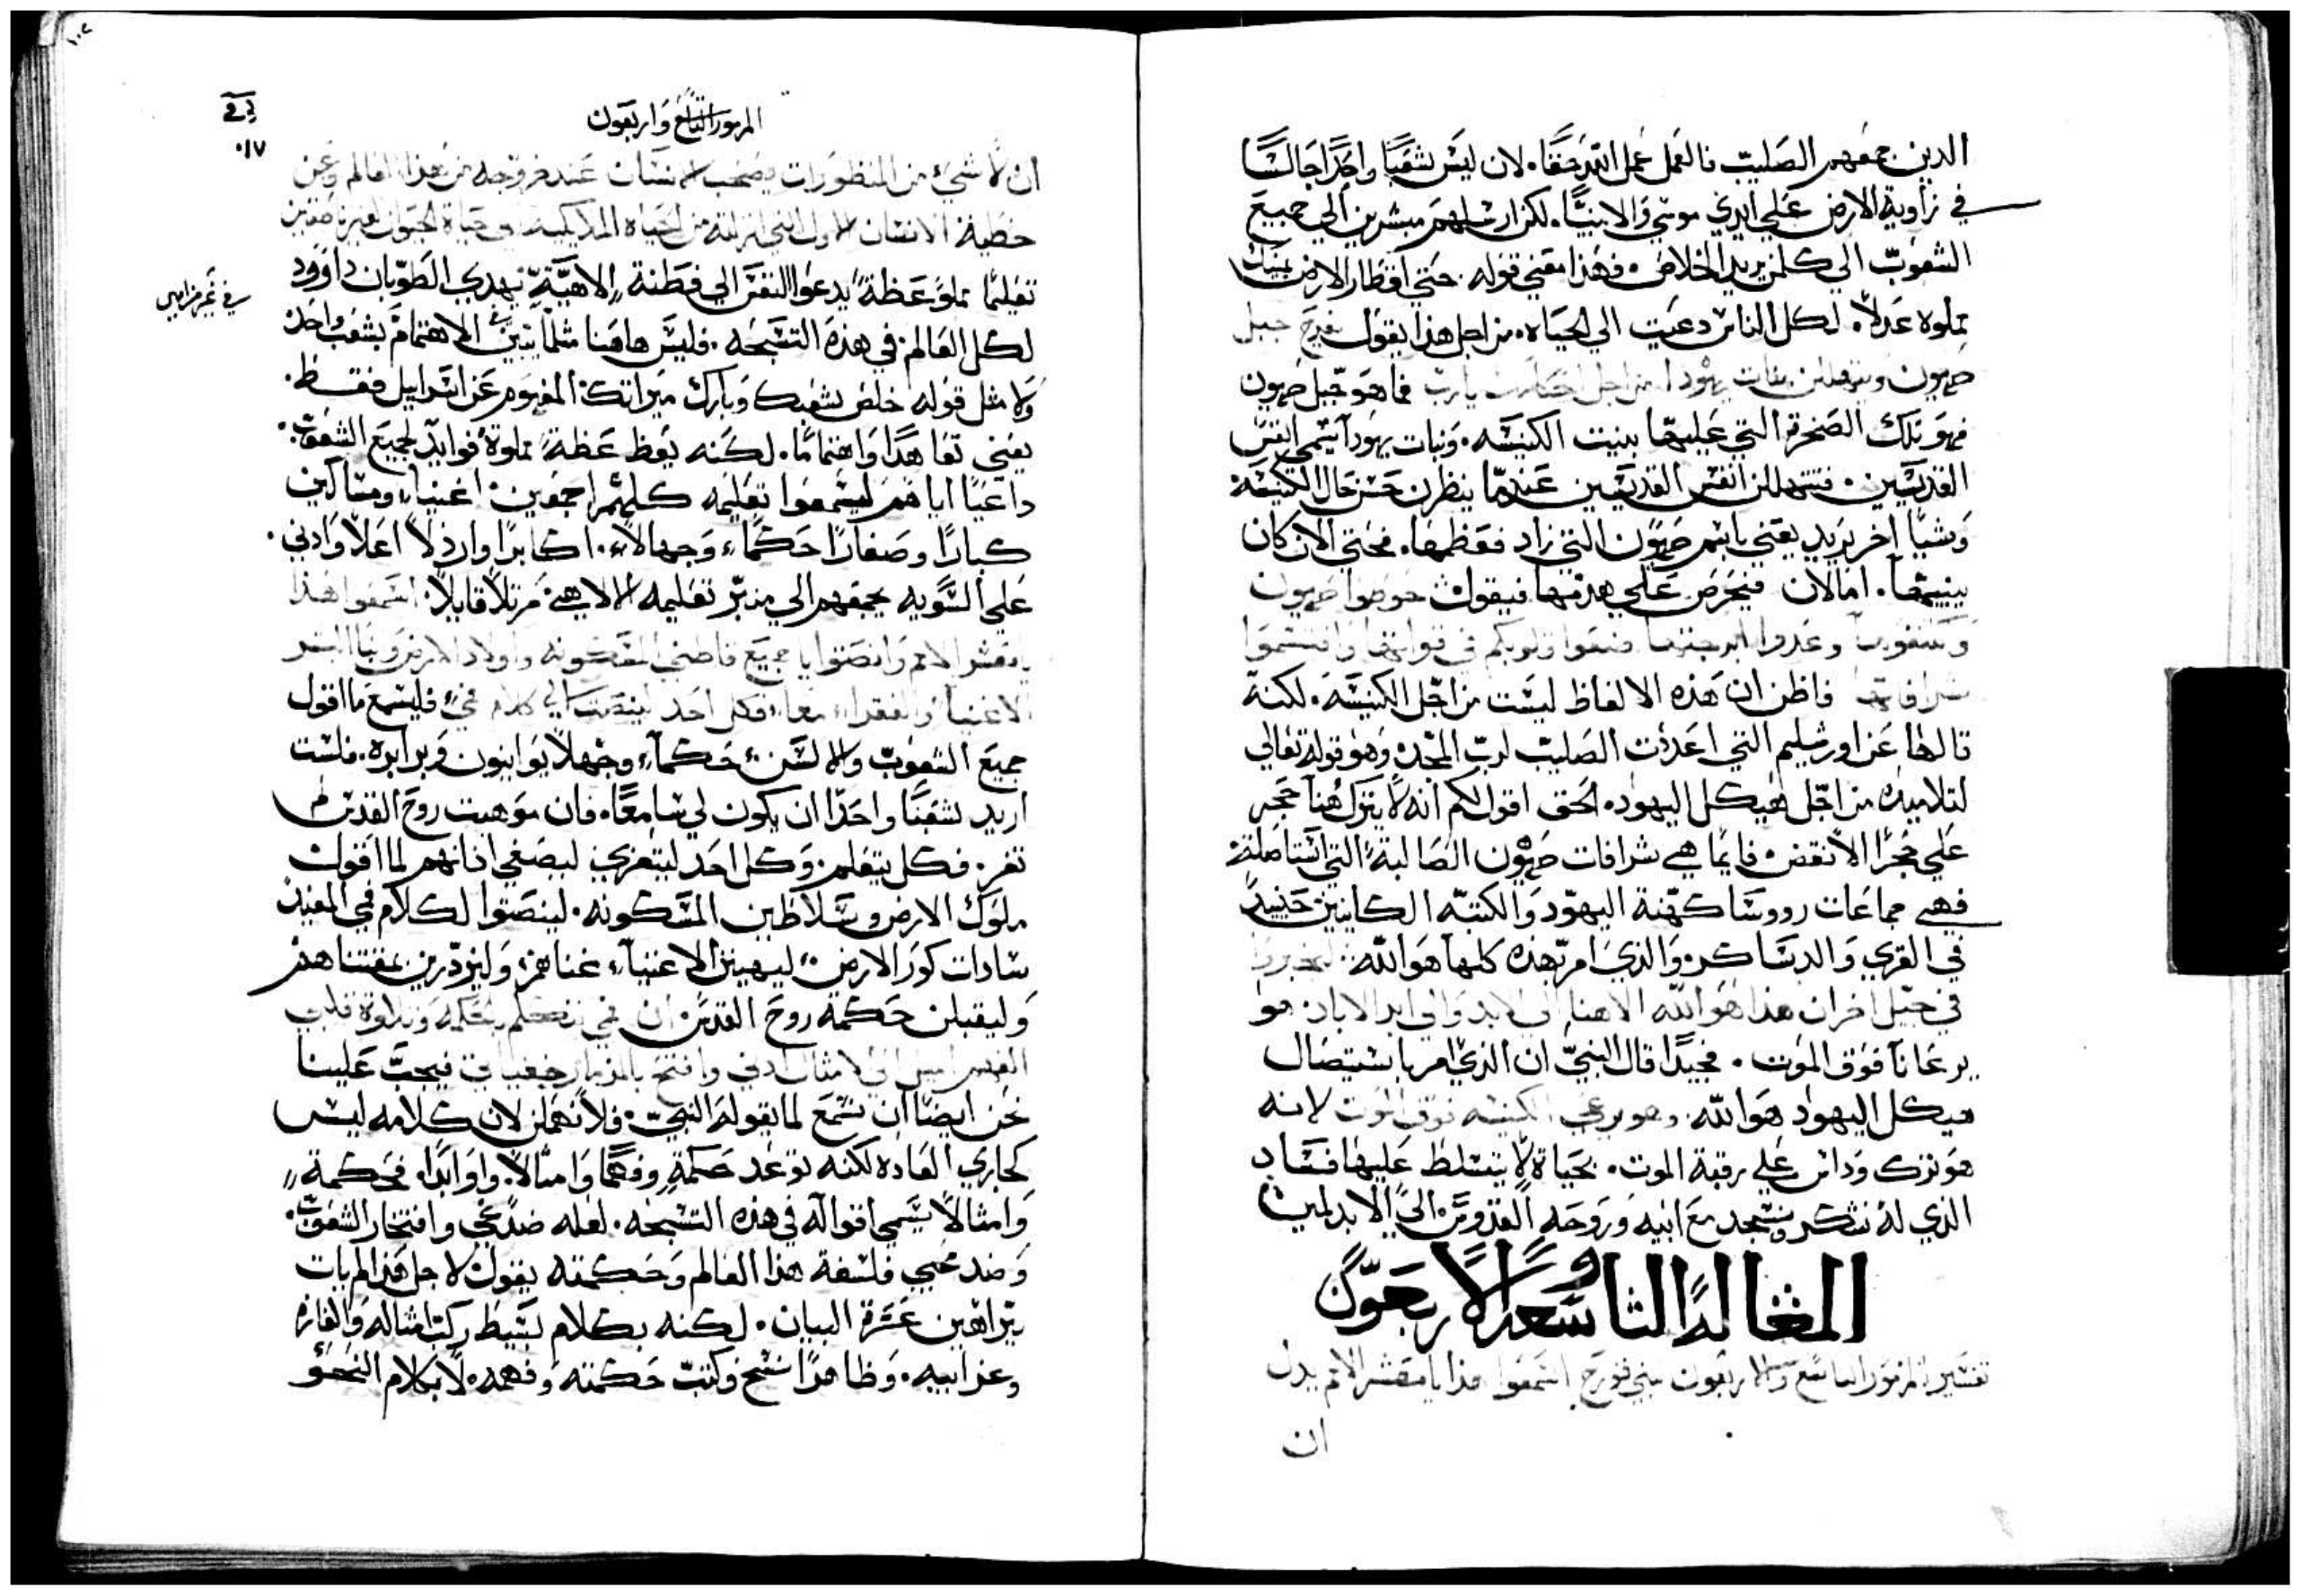 الدين جمعهم الصليب فالعمل عمل الله حقا. لان ليس شعبا واحدا جالسا
في زاوية الارض علي ايدي موسي والانبيا. لكن ارسلهم مبشرين الي جميع
الشعوب الي كلمن يريد الخلاص. فهذا معني قوله حتي اقطار الارض يمينك
مملوه عدلا. لكل الناس دعيت الي الحياه. من اجل هذا يقول يفرح جبل
صهيون ويتهللن بنات يهودا من اجل احكامك يارب فما هو جبل صهيون
فهو تلك الصخرة التي عليها بنيت الكنيسه. وبنات يهودا يسمي انفس
القديسين. فتتهللن انفس القديسين عندما ينظرن حسن حال الكنيسه
وشيا اخر يريد يعني باسم صهيون التي زاد فعظمها. فحتي الان كان
يبنيها. اما الان فيحرض علي هدمها فيقول حوطوا صهيون
واكتنفوها وعدوا ابرجتها ضعوا قلوبكم في قواتها واقتسموا
شرافاتها فاظن ان هذه الالفاظ ليست من اجل الكنيسه. لكنه
قالها عن اورشليم التي اعدت الصليب لرب المجد. وهو قوله تعالي
لتلاميذه من اجل هيكل اليهود. الحق اقول لكم انه لا يترك هنا حجر
علي حجر الا نقض. فايما هي شرافات صهيون الصالبة التي استاصلت
فهي جماعات رووسا كهنة اليهود والكتبه الكاينين حينيد
في القري والدساكر. والذي امر بهذه كلها هو الله. لتخبروا
في جيل اخر ان هذا هو الله الاهنا الي الابد والي ابد الاباد. هو
يرعانا فوق الموت. فجيدا قال النبي ان الذي امر باستيصال
هيكل اليهود هو الله. وهو يرعي الكنيسه فوق الموت لانه
هو نزل وداس علي رقبة الموت. بحياة لا يتسلط عليها فساد
الذي له نشكر ونسجد مع ابيه وروحه القدوس. الي الابد امين
المقالة التاسعه والاربعون
تفسير المزمور التاسع والاربعون لبني قورح اسمعوا هذا يا معشر الامم يدل
ان
المزمور التاسع واربعون
ان لا شيء من المنظورات يصحب الانسان عند خروجه من هذا العالم وعن
خطية الانسان الاول التي انزلته من الحياه الملايكيه الي حياة الحيوان الغير ناطقين
تعليما مملو عظة يدعوا النفس الي فطنة الاهية يهدي الطوبان داوود
لكل العالم في هذه التسبحه. فليس هاهنا مثلما يتبين الاهتمام بشعب واحد
في غير مزامير
ولا مثل قوله خلص شعبك وبارك ميراتك المفهوم عن اسراييل فقط.
يعني تعاهدا واهتماما. لكنه يعظ عظة مملوة فوايد لجميع الشعوب.
داعيا اياهم ليسمعوا تعليمه كلهم اجمعين. اغنيا ومساكين
كبارا وصغارا حكماء وجهالا. اكابرا وارذلا اعلا وادني.
علي السويه يجمعهم الي منبر تعليمه الالاهي. مرتلا قايلا. اسمعوا هذا
يا معشر الامم وانصتوا يا جميع قاطني المسكونه واولاد الارض وبنا البشر
الاغنيا والفقراء معا. فكل احد لينصت الي كلام فمي فليسمع ما اقول
جميع الشعوب والالسن. حكماء وجهلا يوانيون وبرابره. فلست
اريد شعبا واحدا ان يكون لي سامعا. فان موهبت روح القدس لم
تفرز. فكل يتعلم. وكل احد ليتعزي ليصغي اذانهم لما اقول
ملوك الارض وسلاطين المسكونه. لينصتوا لكلام فمي المفيد
سادات كور الارض. ليهينن الاغنياء غناهم. وليزدرين بمقتناهم
وليقبلن حكمة روح القدس. ان فمي تتكلم بحكمه وتلاوة قلبي
الفهم اميل الي الامثال ادني وافتح بالمزمار خفياتي فيجب علينا
نحن ايضا ان نسمع لما يقوله النبي. فلا نهملن لان كلامه ليس
كجاري العاده لكنه توعد حكمة وفهما وامثالا. واوابدا. فحكمة
وامثالا يسمي اقواله في هذه التسبحه. لعله ضد عجب وافتخار الشعوب.
وضد محبي فلسفة هذا العالم وحكمته يقول. لاجل هذا لم يات
ببراهين عسرة البيان. لكنه بكلام بسيط ركب امثاله والغازه
وعرابيه. وظاهرا نسخ وكتب حكمته وفهمه. لا بكلام النحو